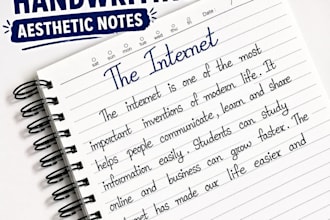 HANDWRITING
AESTHETIC NOTES
sun mon tue wed thu fri sat
Date
The Internet
The internet is one of the most
important inventions of modern life. It
helps people communicate, learn and share
information easily. Students can study
online and business can grow faster. The
has made our life easier and